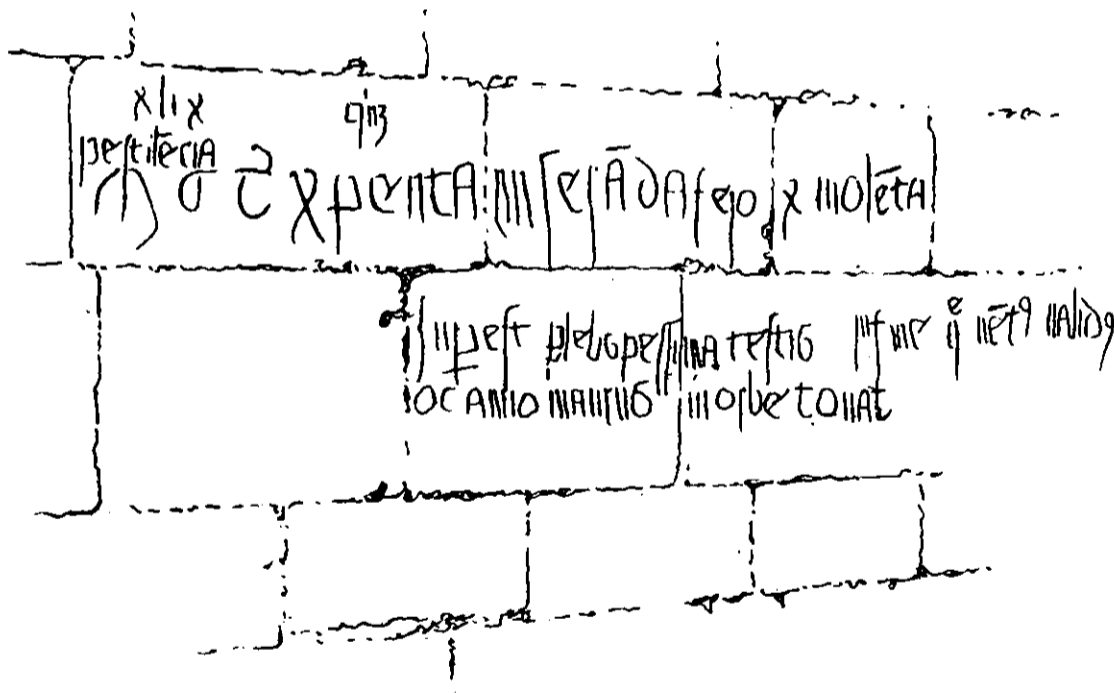 xlix
q'nz
pestilēcia
M C T̄ X penta miserāda ferox violēta
sup̲est plebs pessima testis in fine qͤ vētꝰ validꝰ
oc anno maurus in orbe tonat